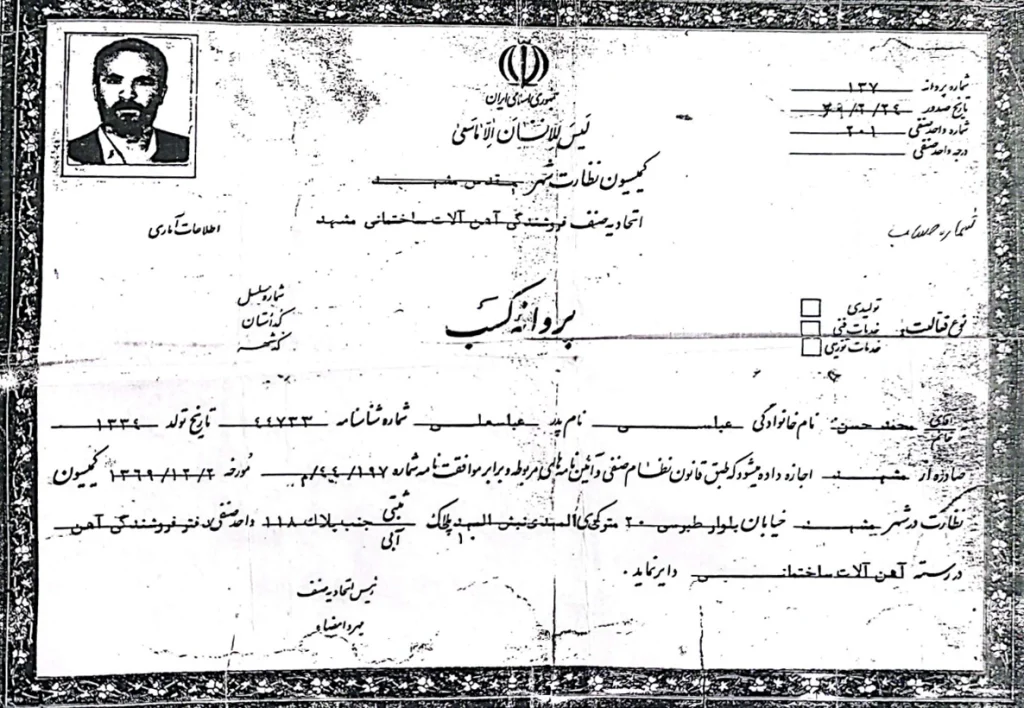 جمهوری اسلامی ایران
لَیسَ لِلاِنسانِ اِلّا ماسَعیٰ
شماره پروانه ۱۳۷
تاریخ صدور ۶۹/۲/۲۴
شماره واحد صنفی ۲۰۱
درجه واحد صنفی
کمیسیون نظارت شهر مقدس مشهد
اتحادیه صنف فروشندگی آهن آلات ساختمانی مشهد
شماره حساب
اطلاعات آماری
شماره مسلسل
کد استان
کد شهر
پروانه کسب
نوع فعالیت:
تولیدی
خدمات فنی
خدمات توزیعی
آقای خانم محمد حسن نام خانوادگی عباسی نام پدر عباسعلی شماره شناسنامه ۴۴۷۳۳ تاریخ تولد ۱۳۳۴
صادره از مشهد اجازه داده میشود که طبق قانون نظام صنفی و آئین نامه های مربوطه و برابر موافقت نامه شماره ۴۴/۱۹۷/م مورخه ۱۳۶۹/۱۲/۲ کمیسیون
نظارت در شهر مشهد خیابان بلوار طبرسی ۲۰ متری المهدی نبش المهدی ۱ پلاک ثبتی آبی جنب پلاک ۱۱۸ واحد صنفی دفتر فروشندگی آهن
در رسته آهن آلات ساختمانی دایر نماید.
رئیس اتحادیه صنف
مهر و امضاء